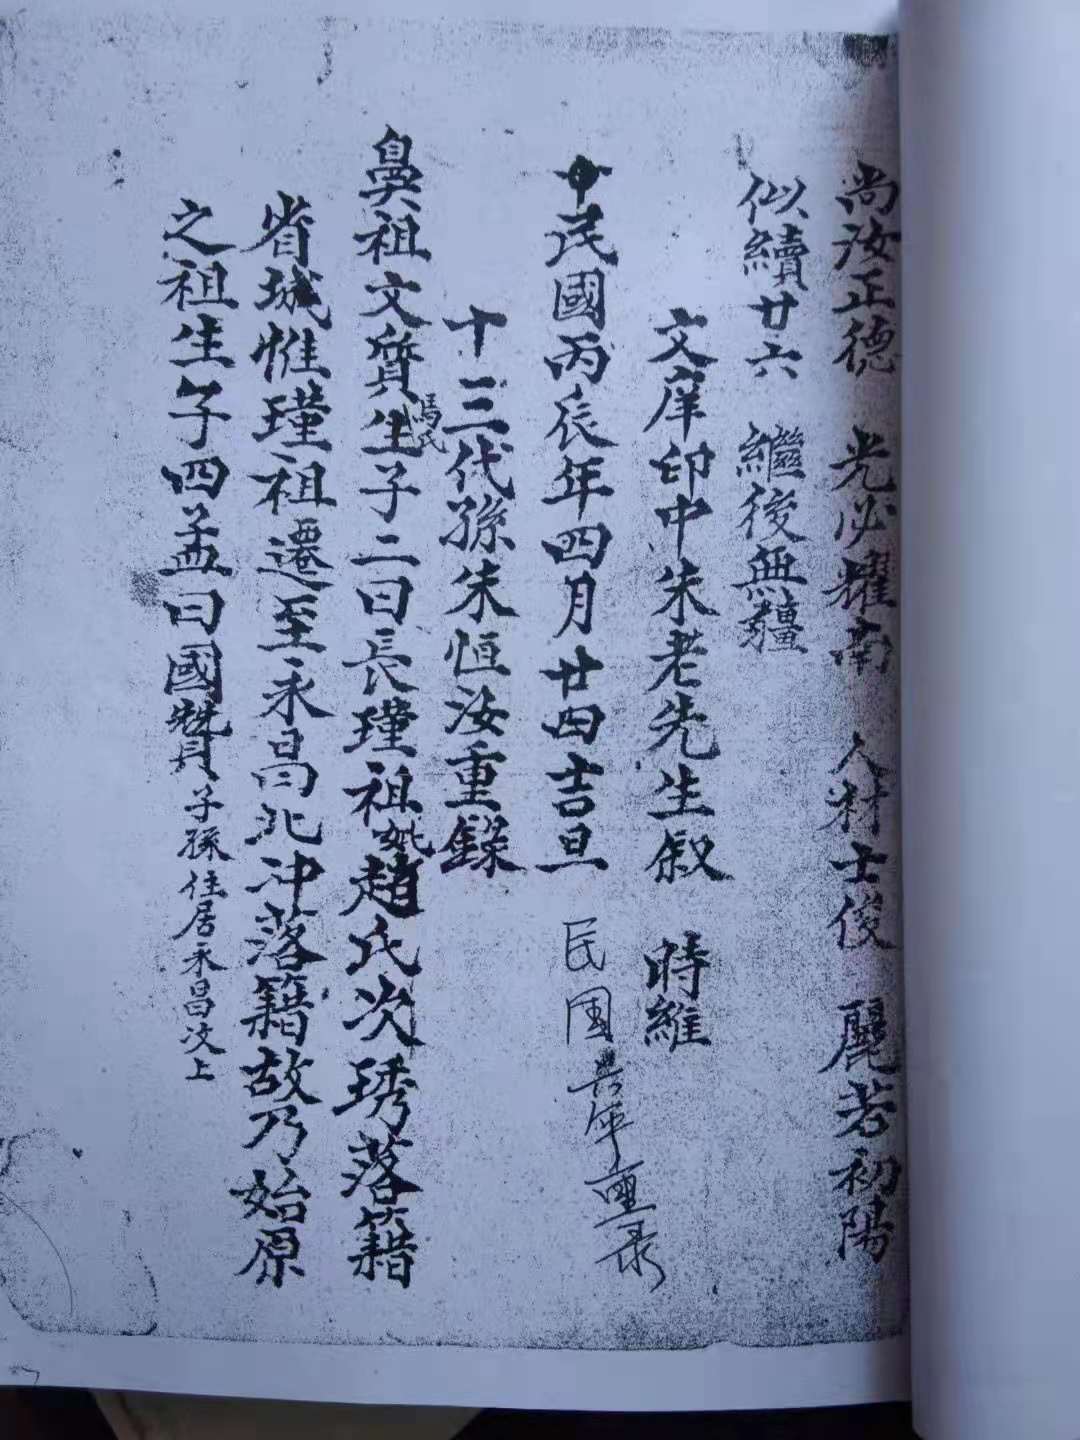 尚汝正德　光必耀南　人材士俊　麗若初陽
似續廿六　繼後無疆
文庠印中朱老先生叙　時維
中民國丙辰年四月廿四吉旦　民国　年重录
十三代孫朱恒汝重錄
鼻祖文質馮氏生子二曰長瑾祖妣趙氏次琇落籍
省城惟瑾祖遷至永昌北冲落籍故乃始原
之祖生子四孟曰國贊子孫住居永昌汶上